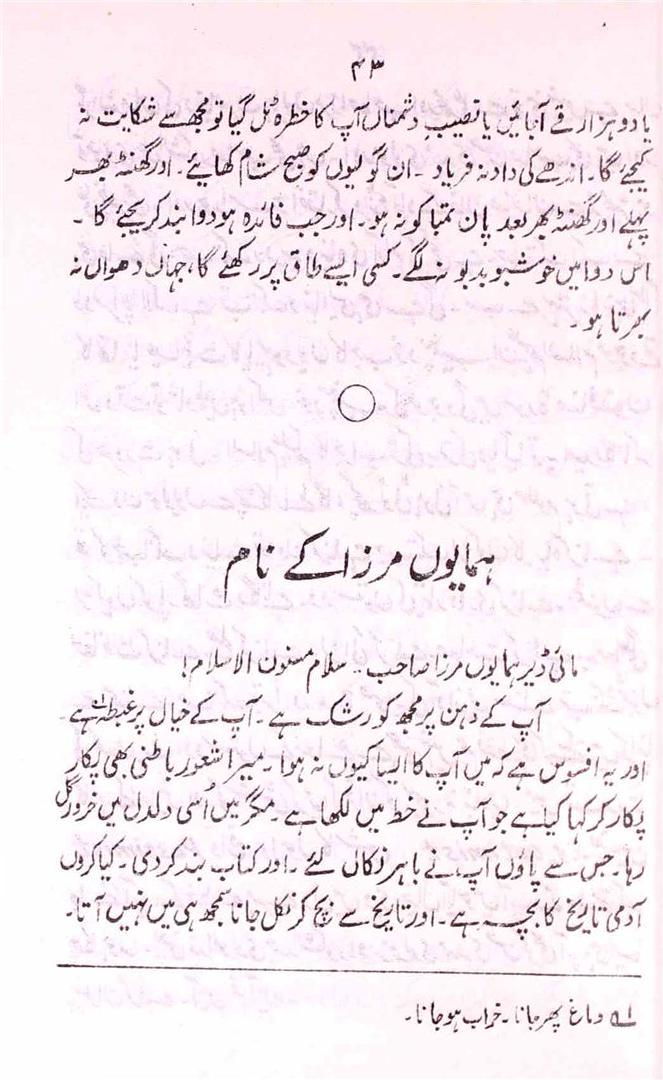 ۴۳
یا دو ہزار قے آجائیں یا نصیب دشمناں آپ کا خطرہ ٹل گیا تو مجھ سے شکایت نہ
کیجئے گا۔ اندھے کی داد نہ فریاد ۔ ان گولیوں کو صبح شام کھائیے ۔ اور گھنٹہ بھر
پہلے اور گھنٹہ بھر بعد پان تمباکو نہ ہو۔ اور جب فائدہ ہو دوا بند کر دیجئے گا ۔
اس دوا میں خوشبو بدبو نہ لگے۔ کسی ایسے طاق پر رکھئے گا، جہاں دھواں نہ
بھرتا ہو۔
ہمایوں مرزا کے نام
مائی ڈیر ہمایوں مرزا صاحب۔ سلام مسنون الاسلام!
آپ کے ذہن پر مجھ کو رشک ہے ۔ آپ کے خیال پر غبطہ ہے ۔
اور یہ افسوس ہے کہ میں آپ کا ایسا کیوں نہ ہوا ۔ میرا شعور باطنی بھی پکار
پکار کر کہا کیا ہے جو آپ نے خط میں لکھا ہے ۔ مگر میں اُسی دلدل میں
رہا۔ جس سے پاؤں آپ نے باہر نکال لئے ۔ اور کتاب بند کر دی ۔ کیا کروں
آدمی تاریخ کا بچہ ہے ۔ اور تاریخ سے بچ کر نکل جانا سمجھ ہی میں نہیں آتا۔
لے دماغ پھر جانا ۔ خراب ہو جانا ۔